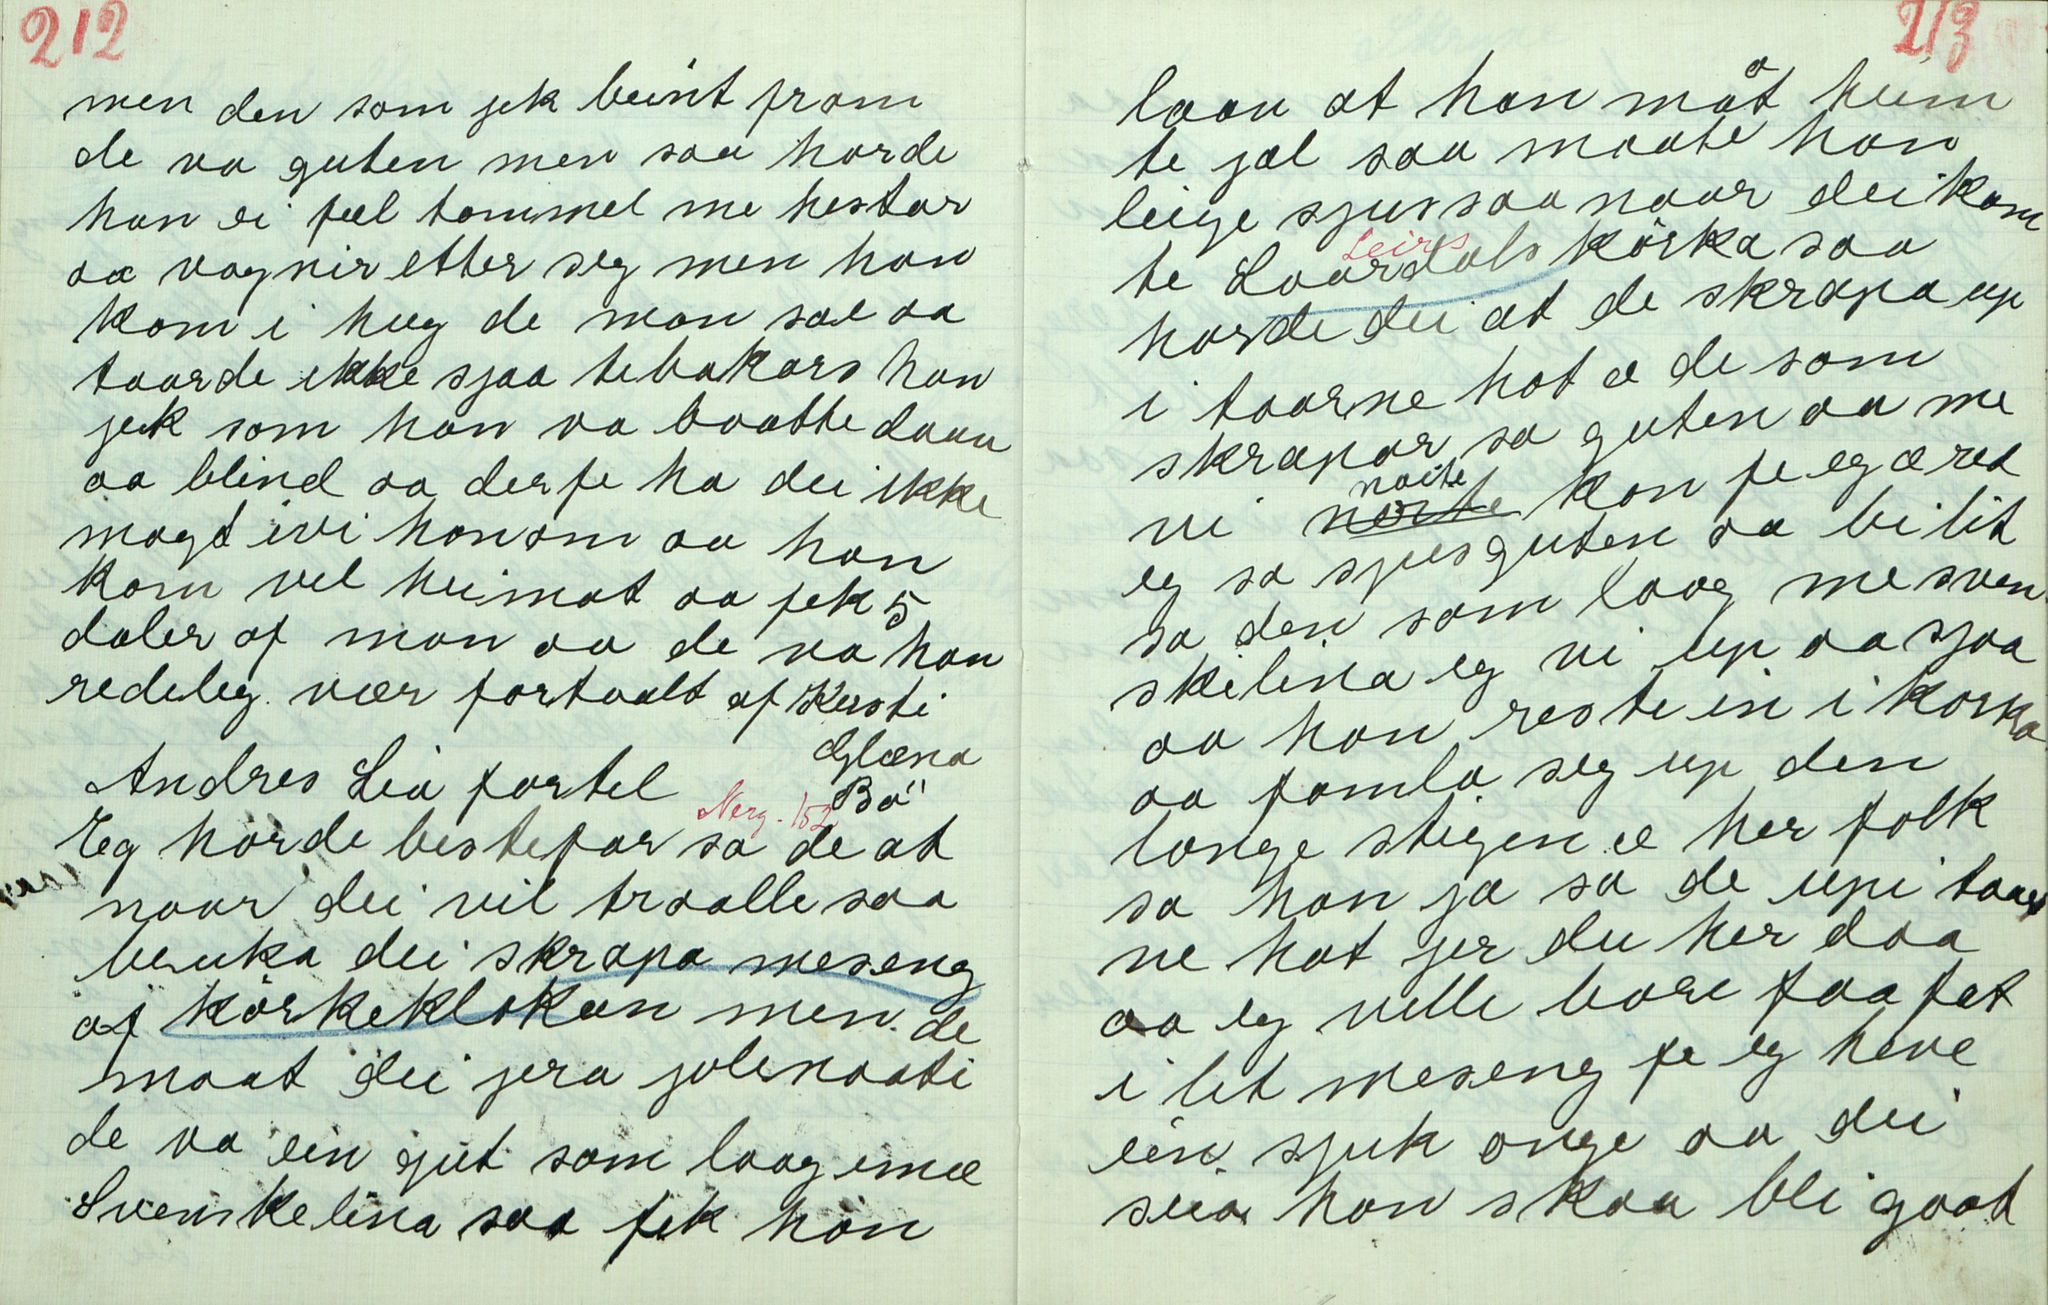 212
men den som jek beint fram
de va guten men saa horde
han ei fæl tommel me hestar
aa vagnir etter seg men han
kom i hug de man sae aa
taarde ikke sjaa tebakars han
jek som han va baatte daau
aa blind aa derfe ha dei ikke
magt ivi honom aa han
kom vel heimat aa fek 5
daler af man aa de va han
redeleg vær fortaalt af Kusti
Glæna
Bö
Andres Lia fortel
Nerg. 152
Eg horde bestefar sa de at
naar dei vil traalle saa
bruka dei skrapa meseng
af körkeklokun men de
maat dei jera jolenaati
de va ein gut som laag imæ
Svenskelina saa fek han
213
laau at han måt heim
te jol saa maate han
leige sjus saa naar dei kom
Leirs
te Laardals körka saa
horde dei at de skrapa up
i taarne hot æ de som
skrapar sa guten aa me
naite
ni norte kan fe eg æ red
eg sa sjusguten aa bi lit
sa den som laag me sven
skelina eg vi up aa sjaa
aa han reste in i korka
aa famla seg up den
lange stigen æ her folk
sa han ja sa de upi taar
ne hot jer du her daa
aa eg velle bare faa fat
i let meseng fe eg heve
ein sjuk onge aa dei
seia han skaa bli goat